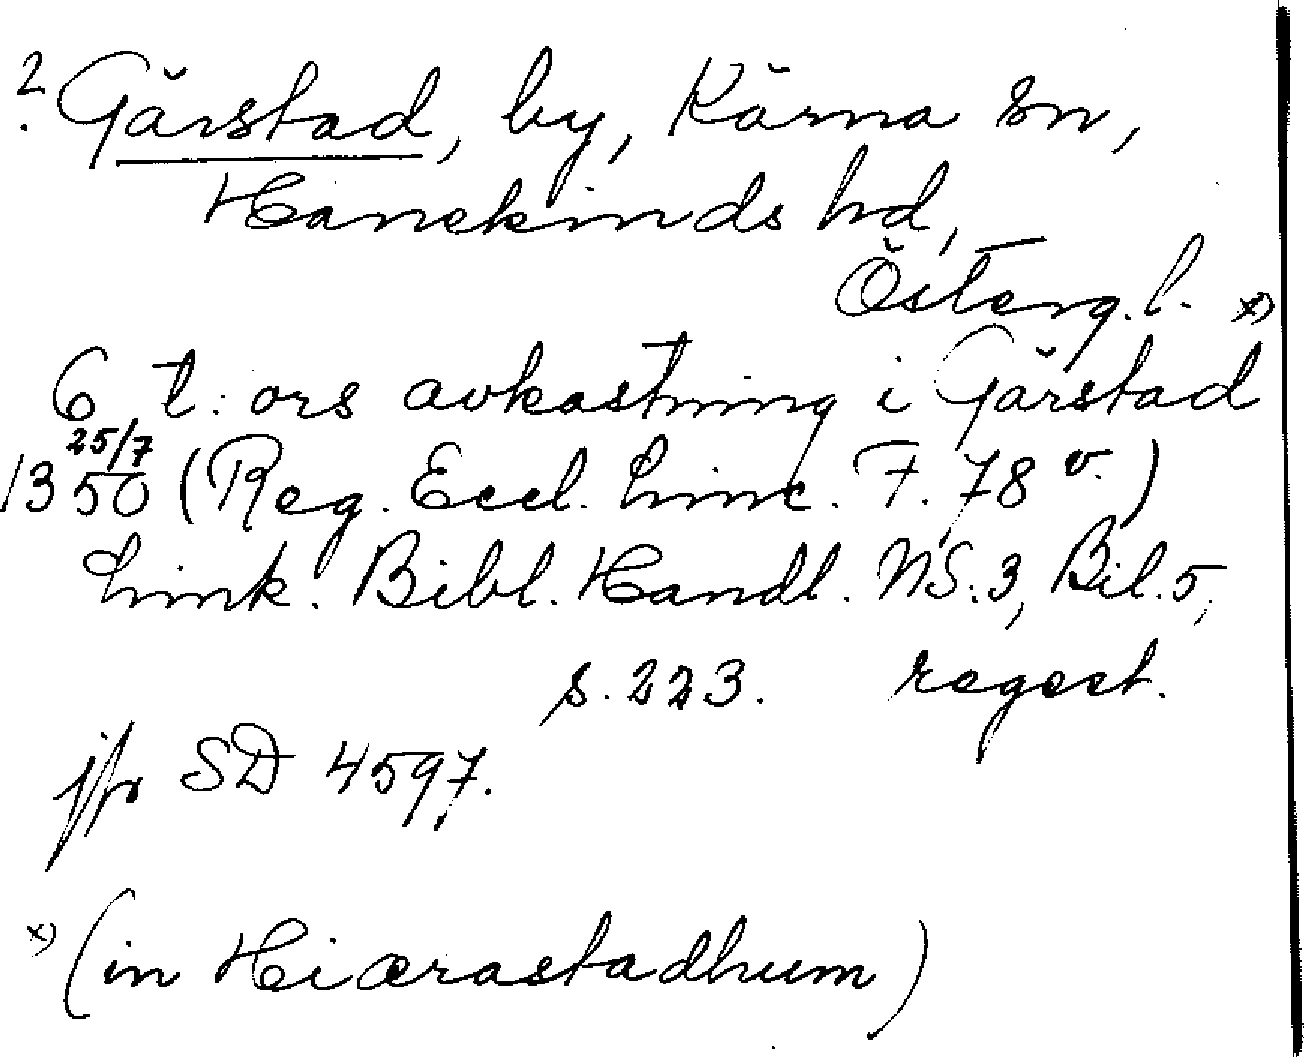 ? Gärstad, by, Kärna sn,
Hanekinds hd,
Österg.l. x)
6 t: ors avkastning i Gärstad
1350 25/7 (Reg. Eccl. Linc. F. 78 v.)
Link. Bibl. Handl. NS. 3, Bil. 5,
s. 223. regest.
jfr SD 4597.
x) (in Hiærastadhum)